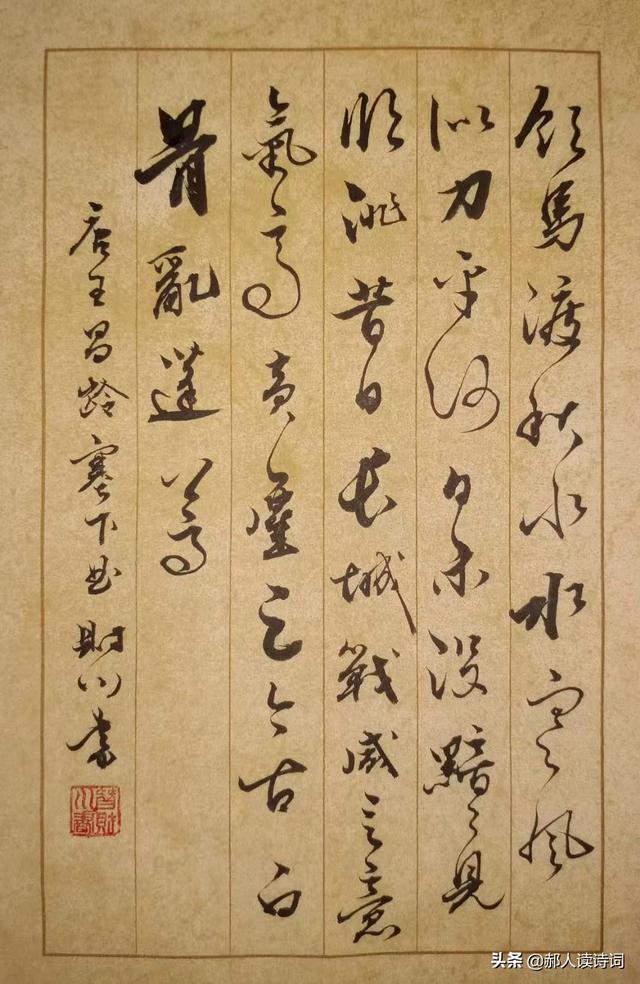 飲馬渡秋水水寒風
似刀平沙日未沒黯々見
臨洮昔日長城戰咸言意
氣高黃塵足今古白
骨亂蓬蒿
唐王昌齡塞下曲 財川書
头条 @郝人读诗词